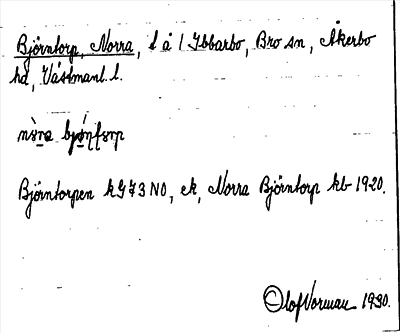 Björntorp, Norra, t å 1 Ibbarbo, Bro sn, Åkerbo
hd, Västmanl. l.
Björntorpen kG 73 NO, ek, Norra Björntorp kb 1920.
Olof Norman 1930.